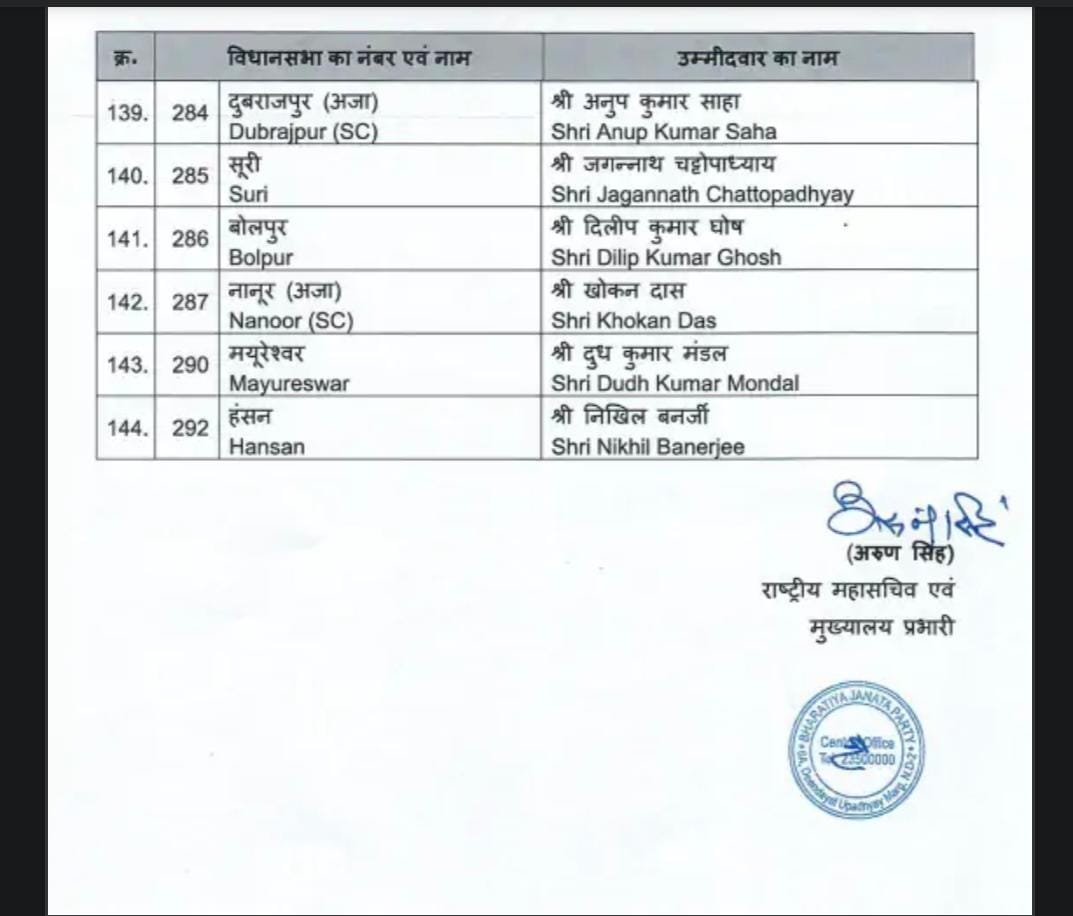 क्र. विधानसभा का नंबर एवं नाम उम्मीदवार का नाम
139. 284 दुबराजपुर (अजा) श्री अनुप कुमार साहा
Dubrajpur (SC) Shri Anup Kumar Saha
140. 285 सूरी श्री जगन्नाथ चट्टोपाध्याय
Suri Shri Jagannath Chattopadhyay
141. 286 बोलपुर श्री दिलीप कुमार घोष
Bolpur Shri Dilip Kumar Ghosh
142. 287 नानूर (अजा) श्री खोकन दास
Nanoor (SC) Shri Khokan Das
143. 290 मयूरेश्वर श्री दुध कुमार मंडल
Mayureswar Shri Dudh Kumar Mondal
144. 292 हंसन श्री निखिल बनर्जी
Hansan Shri Nikhil Banerjee
(अरुण सिंह)
राष्ट्रीय महासचिव एवं
मुख्यालय प्रभारी
BHARATIYA JANATA PARTY
Office
23500000
6A, Deendayal Upadhyay Marg, N.D-2